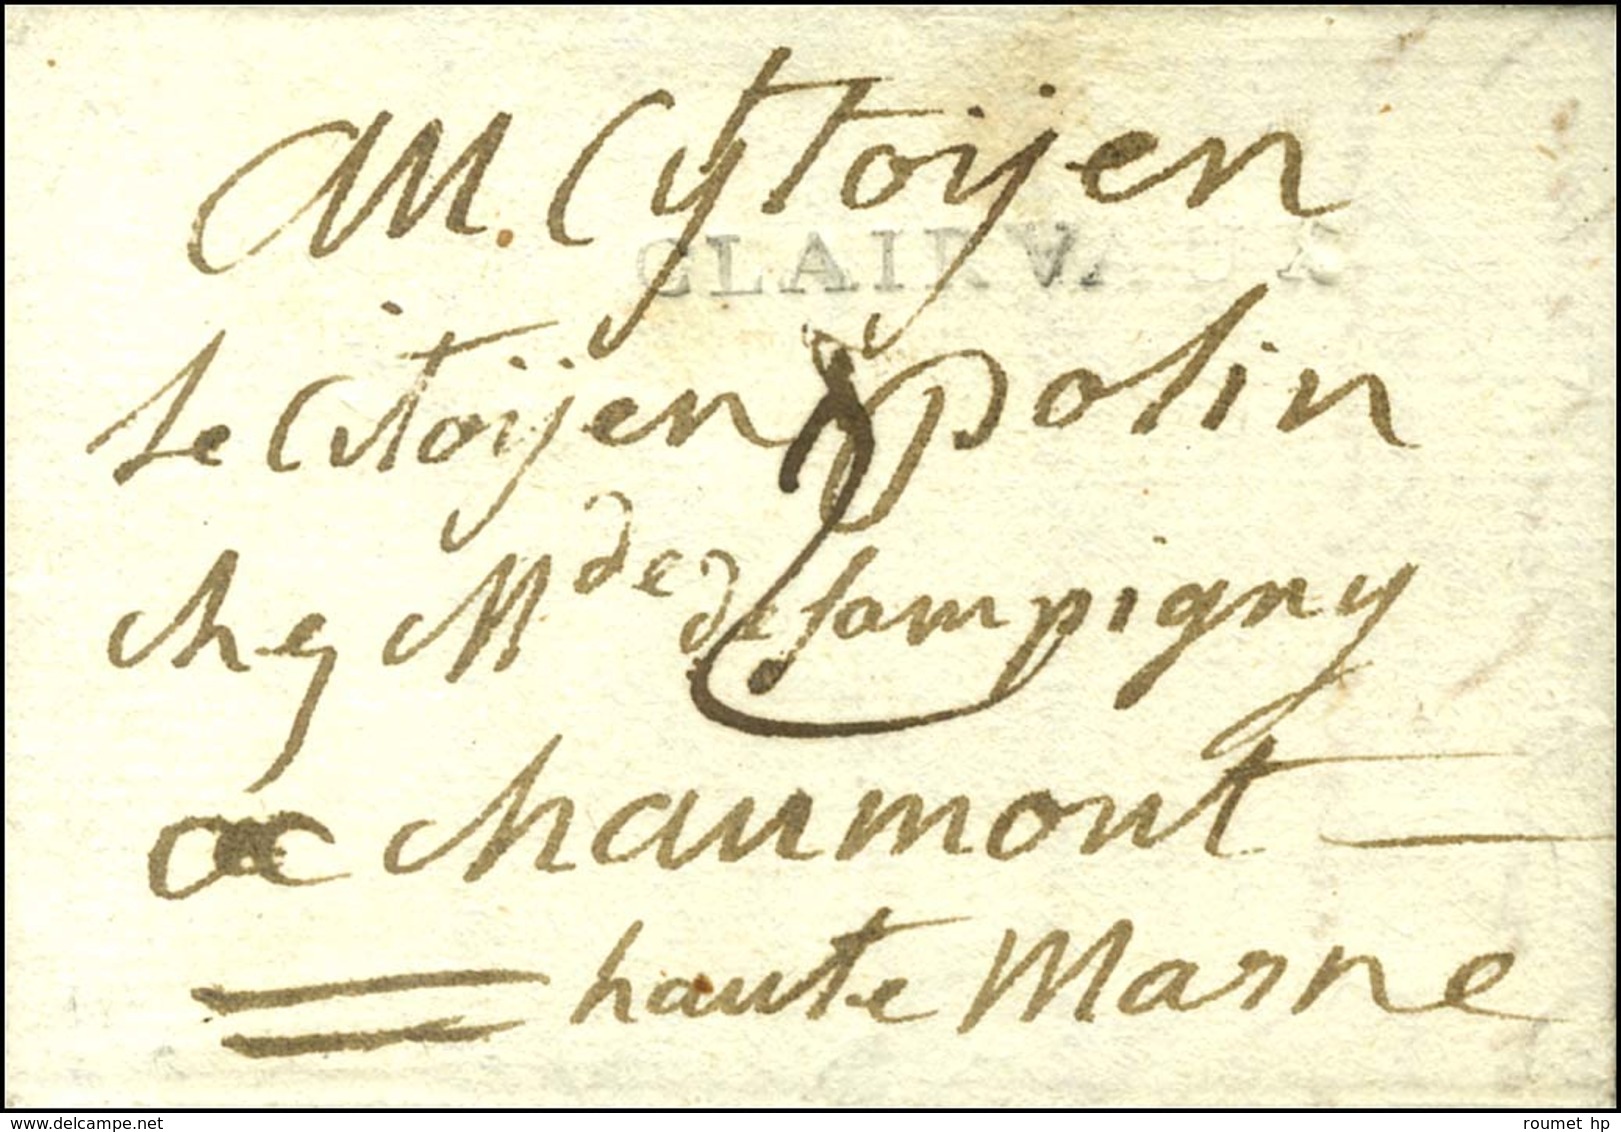 au Cytoyen
CLAIRVAUX
Le Citoyen polin
chez Mde de sampigny
a chaumont
haute Marne
www.delcampe.net
roumet hp